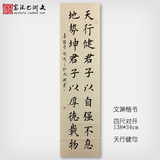 天行健君子以自强不息
地势坤君子以厚德载物
文渊楷书
四尺对开
138*34cm
天行健句